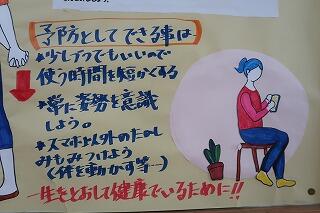 予防としてできる事は
*少しずつでもいいので
使う時間を短かくする
*常に姿勢を意識
しよう。
*スマホ以外のたのし
みもみつけよう
(体を動かす等…)
一生をとおして健康でいるために!!